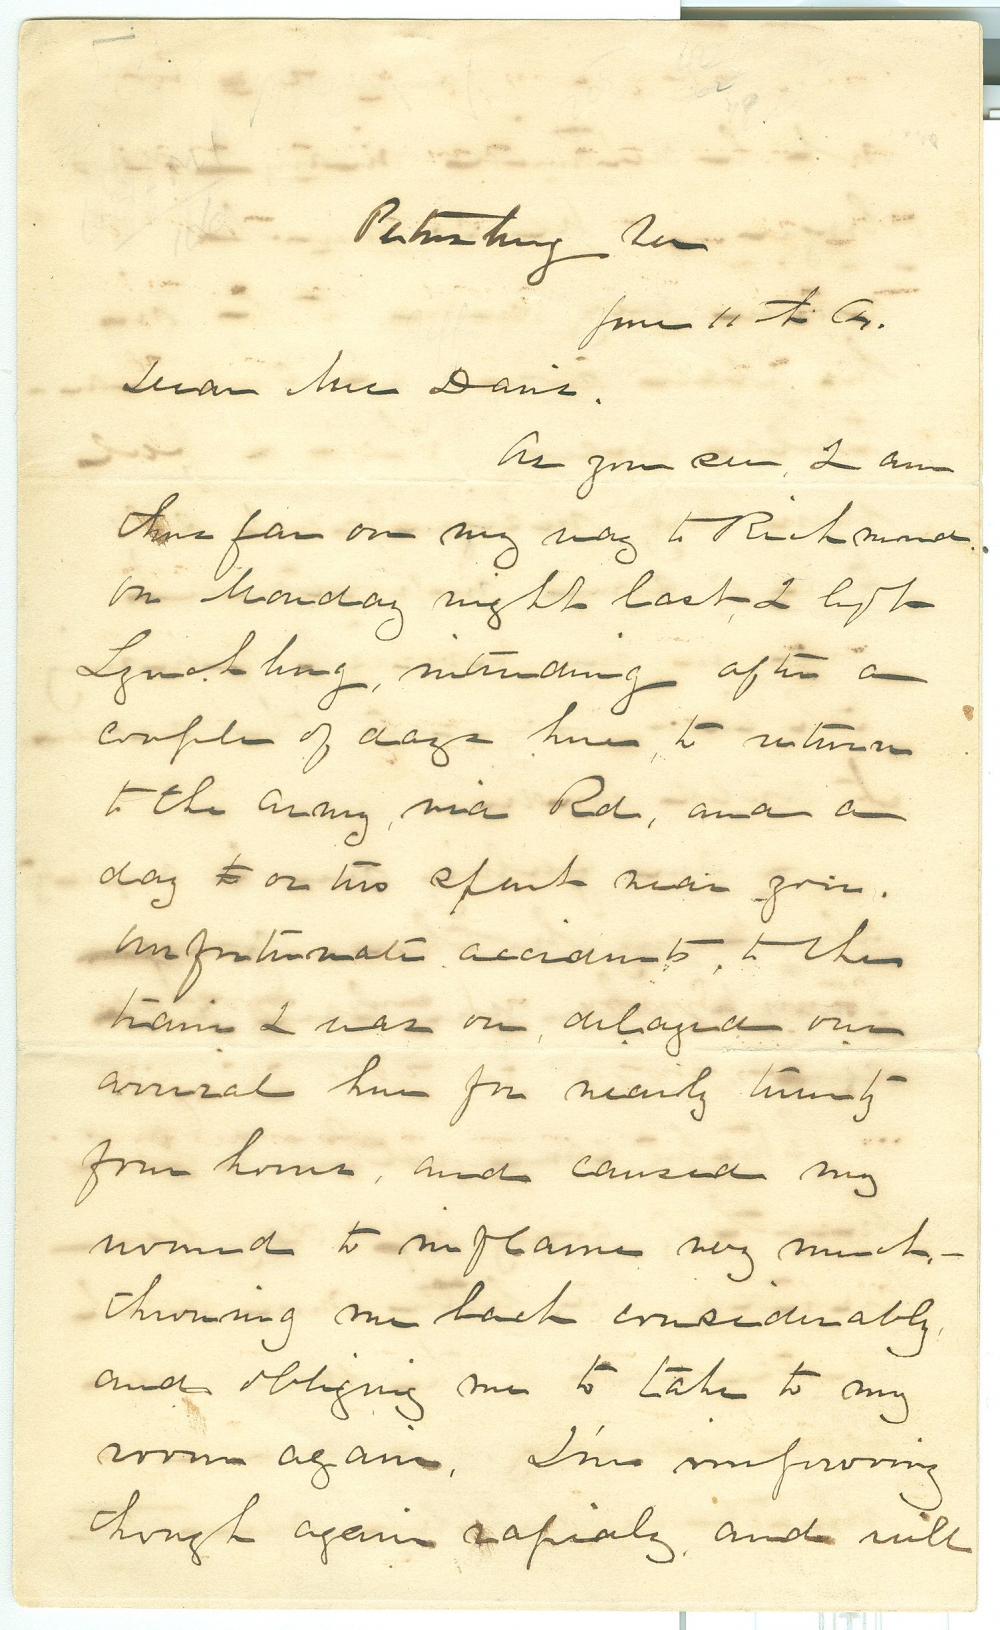 Petersburg Va
June 11th
Dear Mrs Davis.
As you see, I am
thus far on my way to Richmond.
on Monday night last, I left
Lynchburg, intending after a
couple of days here, to return
to the army, via Rd, and a
day or two spent near you.
Unfortunate accidents, to the
train I was on, delayed our
arrival here for nearly twenty
four hours, and caused my
wound to inflame very much,-
throwing me back considerably,
and obliging me to take to my
room again. I'm improving
though again rapidly, and will